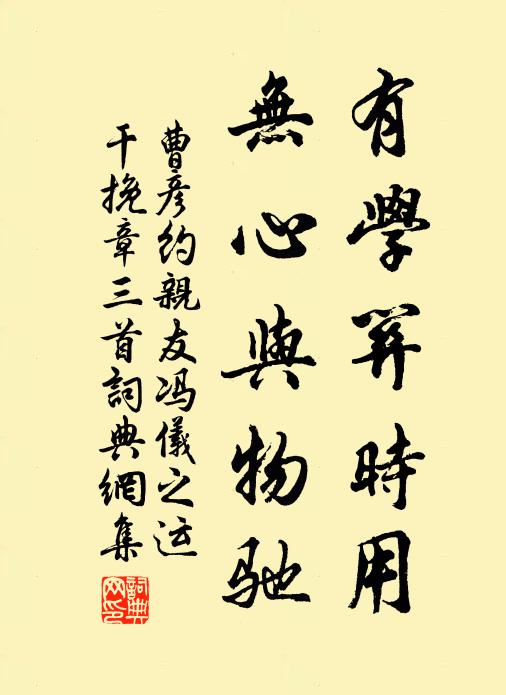 有學時用
無心與物馳
曹彦約親友冯儀之运
干挽章三首詞典網集
詞典
网印